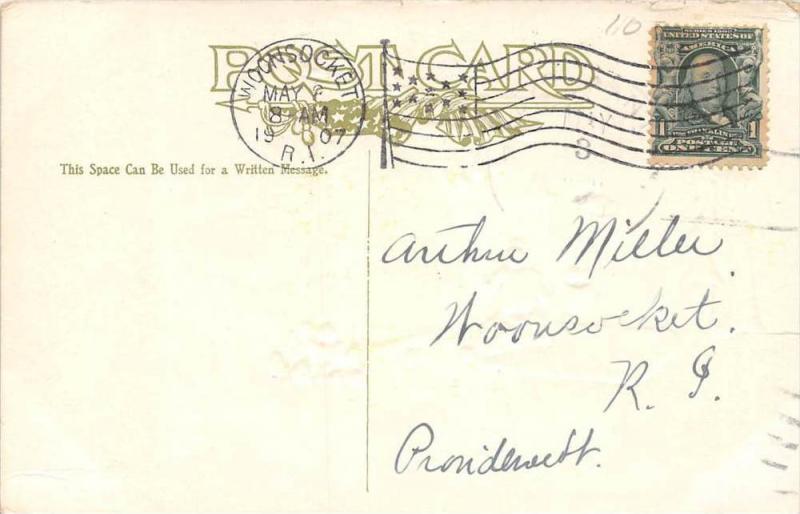 10
POST CARD
WOONSOCKET
MAY
8 AM
19 07
R.I.
MAY
8
SERIES 1902
UNITED STATES OF
AMERICA
1 FRANKLIN 1
POSTAGE
ONE CENT
This Space Can Be Used for a Written Message.
Arthur Miller
Woonsocket.
R. I.
Providence St.